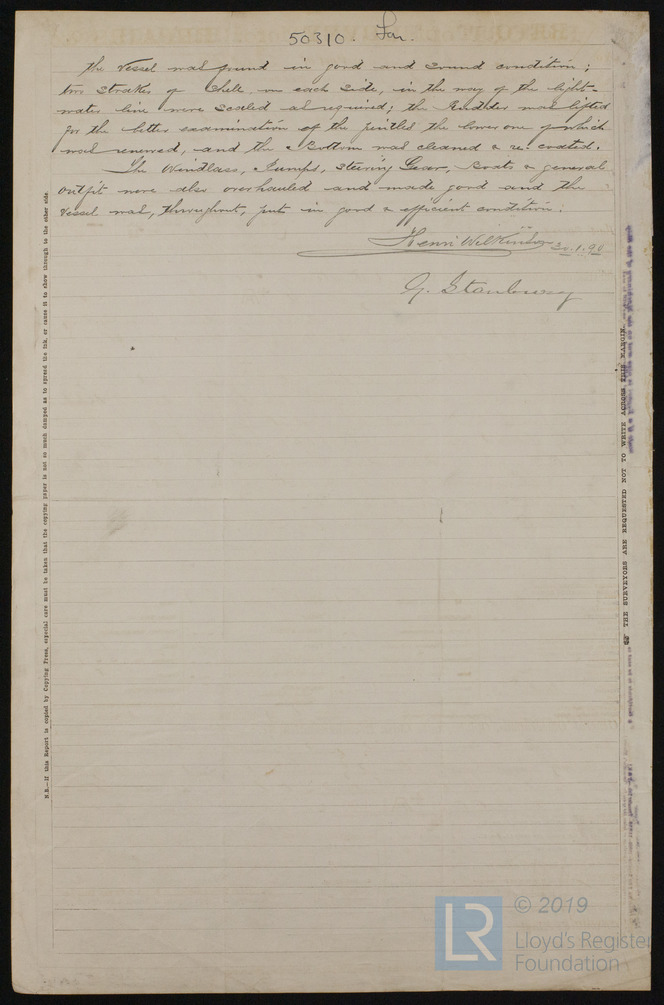 50310. Lon.
the vessel was found in good and sound condition;
two strakes of shell, on each side, in the way of the light-
water line were scaled as required; the Rudder was lifted
for the better examination of the pintles the lower one of which
was renewed, and the Bottom was cleaned & re-coated.
The Windlass, Pumps, Steering Gear, Boats & general
outfit were also overhauled and made good and the
vessel was, throughout, put in good & efficient condition.
Henri Wilkinson 30.1.90
G. Stanbury
N.B.—If this Report is copied by Copying Press, especial care must be taken that the copying paper is not so much damped as to spread the ink, or cause it to show through to the other side.
THE SURVEYORS ARE REQUESTED NOT TO WRITE ACROSS THIS MARGIN.
LR
© 2019
Lloyd's Register
Foundation